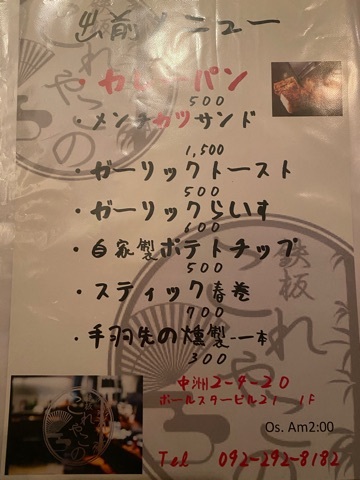 出前メニュー
・カレーパン
500
・メンチカツサンド
1,500
・ガーリックトースト
500
・ガーリックらいす
600
・自家製ポテトチップ
500
・スティック春巻
700
・手羽先の燻製 一本
300
鉄板
これやこの
中洲2-4-20
ポールスタービル21 1F
Os. Am2:00
Tel 092-292-8182